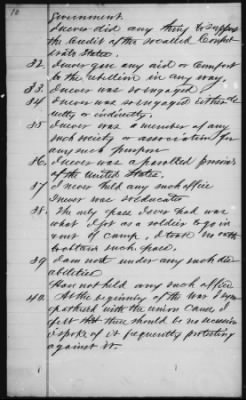 10
Government.
I never did any thing to support
the credit of the so called Confed-
erate States.
32. I never gave any aid or comfort
to the rebellion in any way.
33. I never was so engaged
34 I never was so engaged either di-
rectly or indirectly.
35 I never was a member of any
such society or association for
any such purpose
36. I never was a paroled prisoner
of the United States.
37 I never held any such office
I never was so educated
38. The only pass I ever had was
what I got as a soldier to go in
and out of camp. I took no oath
to obtain such pass.
39 I am not under any such dis-
abilities
Have not held any such office
40. At the beginning of the war I sym-
pathized with the union cause I
felt that there should be no secession
I spoke of it frequently protesting
against it.